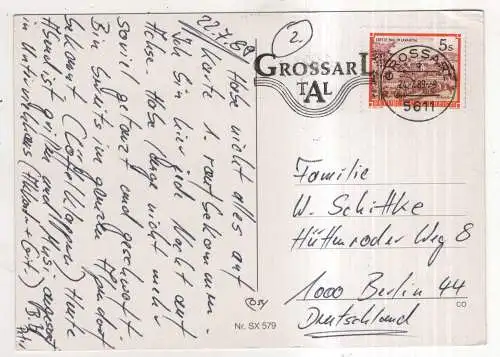 22.7.89
Habe nicht alles auf
Karte 1. raufbekommen.
Ich bin hier jede Nacht auf
Achse. Habe lange nicht mehr
soviel getanzt und geschwoft.
Bin bereits im ganzen
bekannt (Löffelklappern) Heute
Abend ist grillen und Musi angesagt
in Unterviehhaus
2.
GROSSARL
TAL
5s
STIFT ST. PAUL IM LAVANTTAL
GROSSARL
5611
Familie
W. Schittke
Hüttenroder Weg 8
1000 Berlin 44
Deutschland
CO
Nr. SX 579